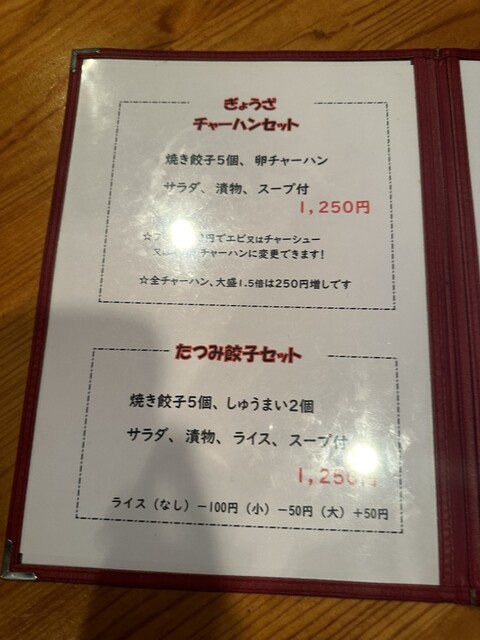 ぎょうざ
チャーハンセット
焼き餃子5個、卵チャーハン
サラダ、漬物、スープ付
1,250円
円でエビ又はチャーシュー
チャーハンに変更できます!
☆全チャーハン、大盛1.5倍は250円増しです
たつみ餃子セット
焼き餃子5個、しゅうまい2個
サラダ、漬物、ライス、スープ付
1,250円
ライス（なし）−100円（小）−50円（大）+50円